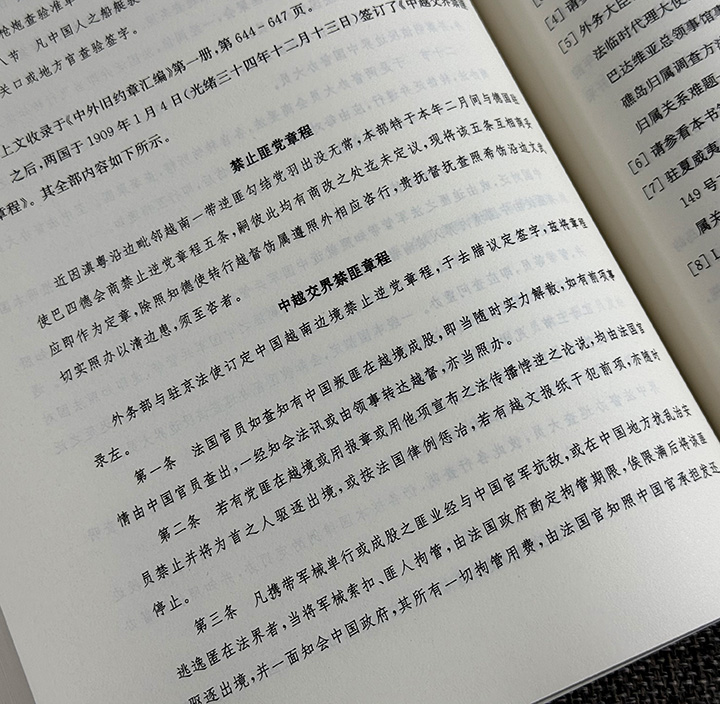 枪炮查验准单
八节 凡中国人之船艇
关口或地方官查验签字。
上文收录于《中外旧约章汇编》第一册,第 644-647 页。
之后,两国于 1909 年 1 月 4 日(光绪三十四年十二月十三日)签订了《中越交界禁匪
章程》。其全部内容如下所示。
禁止匪党章程
近因滇粤沿边毗邻越南一带逆匪勾结党羽出没无常,本部特于本年二月间与德国驻
使巴四德会商禁止逆党章程五条,嗣彼此均有商改之处迄未定议,现将该五条互相商妥
应即作为定章,除照知德使转行越督饬属遵照外相应咨行,贵抚督抚查照希饬沿边文武
切实照办以清边息,须至咨者。
中越交界禁匪章程
外务部与驻京法使订定中国越南边境禁止逆党章程,于去腊议定签字,兹将章程
录左。
第一条 法国官员如查知有中国叛匪在越境成股,即当随时实力解散,如有前项事
情由中国官员查出,一经知会法讯或由领事转达越督,亦当照办。
第二条 若有党匪在越境或用报章或用他项宣布之法传播悖逆之论说,均由法国官
员禁止并将为首之人驱逐出境,或按法国律例惩治,若有越文报纸干犯前项,亦随时
停止。
第三条 凡携带军械单行或成股之匪业经与中国官军抗敌,或在中国地方扰乱治安
逃逸匿在法界者,当将军械索扣、匪人拘管,由法国政府酌定拘管期限,俟限满后将该匪
驱逐出境,并一面知会中国政府,其所有一切拘管用费,由法国官知照中国官承担发还
[4] 请
[5] 外务大臣
法临时代理大使
巴达维亚总领事馆
礁岛归属调查方
归属关系难题
[6] 请参看本书
[7] 驻夏威夷
149 号
年 1
[8] L